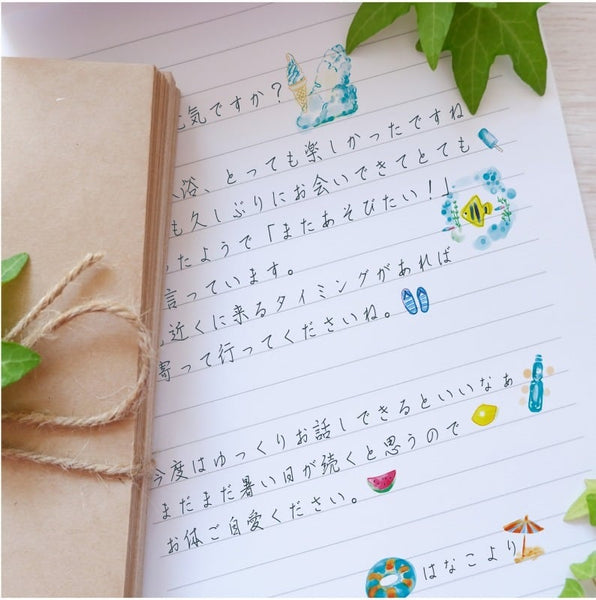 気ですか？
浴、とっても楽しかったですね
も久しぶりにお会いできてとても
ったようで「またあそびたい！」
言っています。
近くに来るタイミングがあれば
寄って行ってくださいね。
今度はゆっくりお話しできるといいなぁ
まだまだ暑い日が続くと思うので
お体ご自愛ください。
はなこより